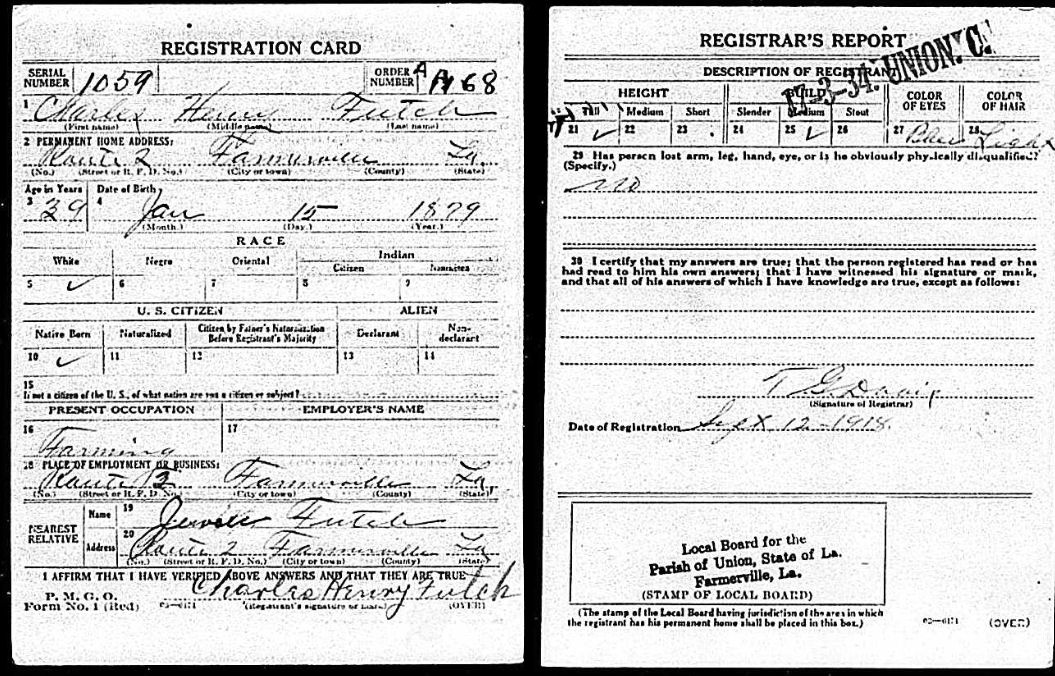 REGISTRATION CARD
SERIAL NUMBER 1059 ORDER NUMBER A 1168
1 Charles Henry Futch
(First name) (Middle name) (Last name)
2 PERMANENT HOME ADDRESS:
Route 2 Farmerville La.
(No.) (Street or R. F. D. No.) (City or town) (County) (State)
Age in Years Date of Birth
3 39 4 Jan 15 1879
(Month.) (Day.) (Year.)
RACE
White Negro Oriental Indian
Citizen Noncitizen
5 ✓ 6 7 8 9
U. S. CITIZEN ALIEN
Native Born Naturalized Citizen by Father's Naturalization Before Registrant's Majority Declarant Non-declarant
10 ✓ 11 12 13 14
15
If not a citizen of the U. S., of what nation are you a citizen or subject?
PRESENT OCCUPATION EMPLOYER'S NAME
16 17
Farming
18 PLACE OF EMPLOYMENT OR BUSINESS:
Route 2 Farmerville La.
(No.) (Street or R. F. D. No.) (City or town) (County) (State)
NEAREST RELATIVE
Name 19 Jewell Futch
Address 20 Route 2 Farmerville La
(No.) (Street or R. F. D. No.) (City or town) (County) (State)
I AFFIRM THAT I HAVE VERIFIED ABOVE ANSWERS AND THAT THEY ARE TRUE
P. M. G. O.
Form No. 1 (Red) 03—6171 Charles Henry Futch
(Registrant's signature or mark) (OVER)
REGISTRAR'S REPORT
17-3-34. UNION. C.
DESCRIPTION OF REGISTRANT
HEIGHT BUILD COLOR OF EYES COLOR OF HAIR
Tall Medium Short Slender Medium Stout
21 ✓ 22 23 24 25 ✓ 26 27 Blue 28 Light
29 Has person lost arm, leg, hand, eye, or is he obviously physically disqualified?
(Specify.)
no
30 I certify that my answers are true; that the person registered has read or has
had read to him his own answers; that I have witnessed his signature or mark,
and that all of his answers of which I have knowledge are true, except as follows:
T G Davis
(Signature of Registrar)
Date of Registration Sept 12-1918
Local Board for the
Parish of Union, State of La.
Farmerville, La.
(STAMP OF LOCAL BOARD)
(The stamp of the Local Board having jurisdiction of the area in which
the registrant has his permanent home shall be placed in this box.)
03—6171 (OVER)